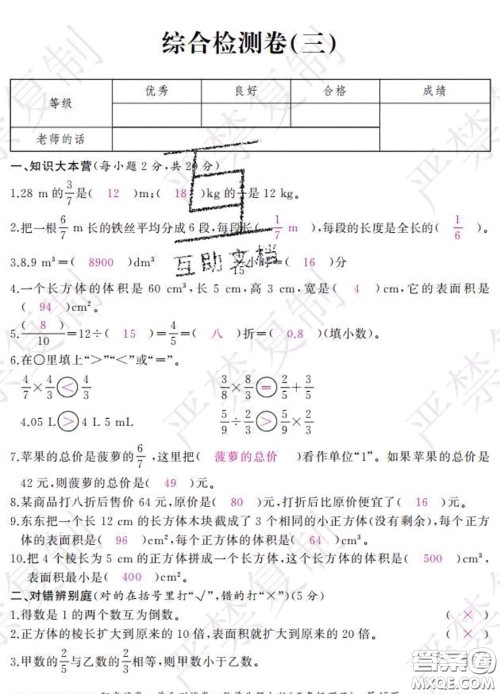 综合检测卷(三)
等级 优秀 良好 合格 成绩
老师的话
一、知识大本营(每小题2分,共20分)
1.28 m的3/7是( 12 )m;( 18 )kg的 是12 kg。
2.把一根6/7 m长的铁丝平均分成6段,每段长( 1/7 m ),每段的长度是全长的( 1/6 )。
3.8.9 m³=( 8900 )dm³ /15 小 =( 16 )分
4.一个长方体的体积是60 cm³,长5 cm,高3 cm,宽是( 4 )cm,它的表面积是
( 94 )cm²。
5.( 8 )/10=12÷( 15 )=4/5=( 八 )折=( 0.8 )(填小数)。
6.在○里填上“>”“<”或“=”。
4/7×4/3 < 4/3 3/8×8/3 = 2/5+3/5
4.05 L > 4 L 5 mL 5/9÷2/3 > 5/9×2/3
7.苹果的总价是菠萝的6/7,这里把( 菠萝的总价 )看作单位“1”。如果苹果的总价是
42元,则菠萝的总价是( 49 )元。
8.某商品打八折后售价64元,原价是( 80 )元,打折后比原价便宜了( 16 )元。
9.东东把一个长12 cm的长方体木块截成了3个相同的小正方体(没有剩余),每个正方
体的表面积是( 96 )cm²,每个正方体的体积是( 64 )cm³。
10.把4个棱长为5 cm的正方体拼成一个长方体,这个长方体的体积是( 500 )cm³,
表面积最小是( 400 )cm²。
二、对错辨别庭(对的在括号里打“√”,错的打“×”)(5分)
1.得数是1的两个数互为倒数。 ( × )
2.正方体的棱长扩大到原来的10倍,表面积就扩大到原来的20倍。 ( × )
3.甲数的2/5与乙数的2/3相等,则甲数小于乙数。
严禁复制
互助文档
答案圈
MXQE.COM